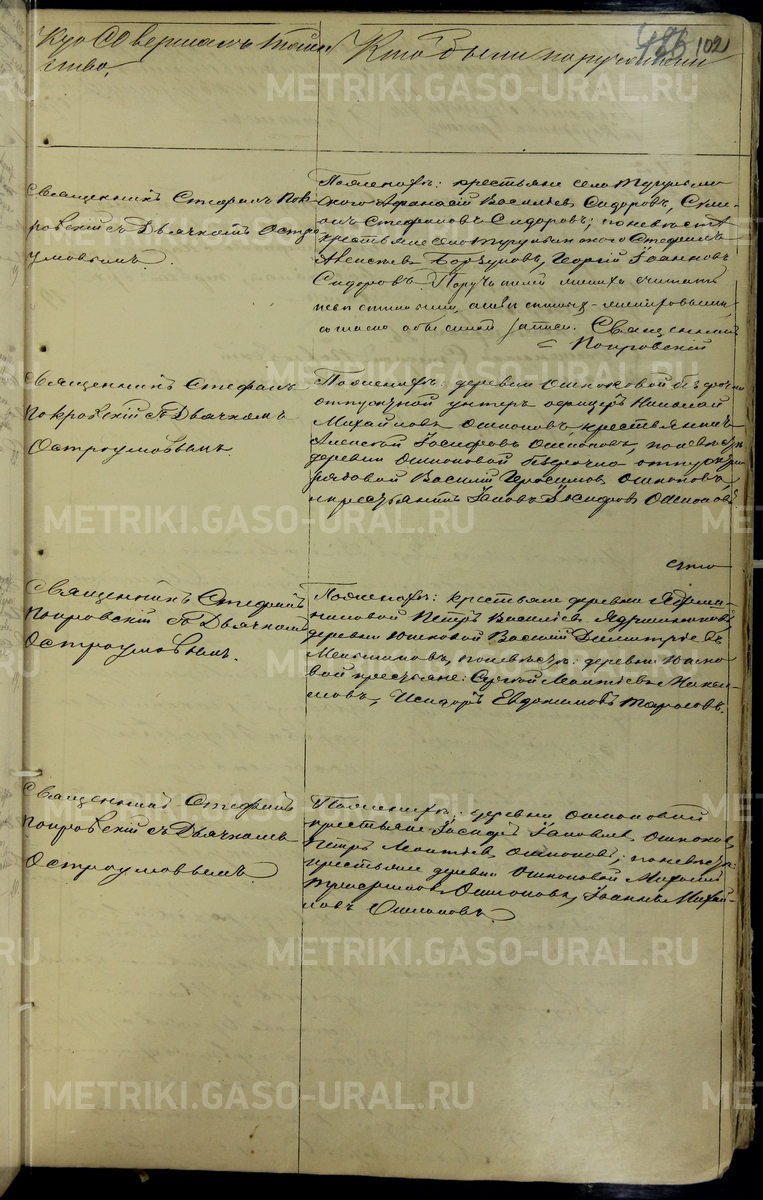 486 102
Кто совершалъ таин
ство.
Кто были поручители
METRIKI.GASO-URAL.RU
Священникъ Стефанъ Пок-
ровскій съ Дьячкомъ Остро
умовымъ.
По женихѣ: крестьяне села
Афанасій Васильевъ Сидоровъ,
Стефановъ Сидоровъ; по невѣстѣ
крестьяне села Стефанъ
Алексѣевъ Георгій Іоанновъ
Сидоровъ. Поручителей жениха считать
согласно записи. Священникъ
С Покровскій
Священникъ Стефанъ
Покровскій съ Дьячкомъ
Остроумовымъ.
По женихѣ: деревни Ошлоковой безсрочно
отпускной унтеръ офицеръ Николай
Михайловъ Ошлоковъ, крестьянинъ
Алексѣй Іосифовъ Ошлоковъ, по невѣстѣ
деревни Ошлоковой безсрочно отпускной
рядовой Василій Герасимовъ Ошлоковъ,
крестьянинъ Іаковъ Іосифовъ Ошлоковъ
METRIKI.GASO-URAL.RU
что
Священникъ Стефанъ
Покровскій съ Дьячкомъ
Остроумовымъ.
По женихѣ: крестьяне деревни
Петръ Васильевъ
деревни Юшковой Василій Димитріевъ
Меньшиковъ, по невѣстѣ: деревни Юшко-
вой крестьяне: Сергѣй Матвѣевъ
Исидоръ Евдокимовъ Тарасовъ.
METRIKI.GASO-URAL.RU
Священникъ Стефанъ
Покровскій съ Дьячкомъ
Остроумовымъ.
По женихѣ: деревни Ошлоковой
крестьяне Іосифъ Іаковлевъ Ошлоковъ,
Петръ Матвѣевъ Ошлоковъ; по невѣстѣ:
крестьяне деревни Ошлоковой Михаилъ
Ошлоковъ, Іоаннъ Михай-
ловъ Ошлоковъ.
METRIKI.GASO-URAL.RU
METRIKI.GASO-URAL.RU